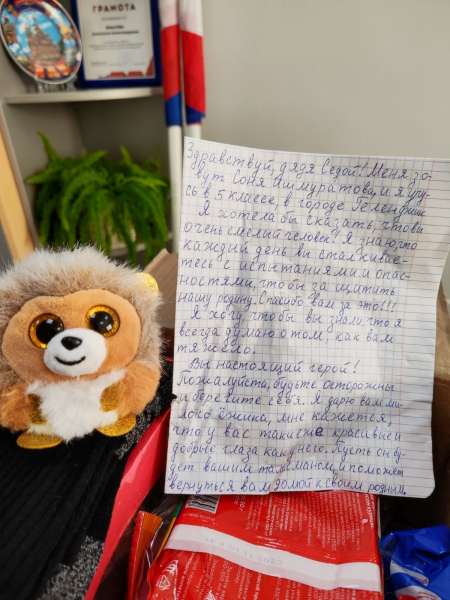 ГРАМОТА
Здравствуй, дядя Седой! Меня зо-
вут Соня Ашмуратова, и я учу-
сь в 5 классе, в городе Геленджик
Я хотела бы сказать, что вы
очень смелый человек! Я знаю что
каждый день вы сталкивае-
тесь с испытаниями и опас-
ностями, что бы за щитить
нашу родину. Спасибо вам за это!!!
Я хочу чтобы вы знали, что я
всегда думаю о том, как вам
тяжело.
Вы настоящий герой!
Пожалуйста, будьте осторожны
и берегите себя. Я дарю вам ми-
лого ёжика, мне кажется,
что у вас такие же красивые и
добрые глаза как у него. Пусть он бу-
дет вашим талисманом, и поможет
вернуться вам домой к своим родным.